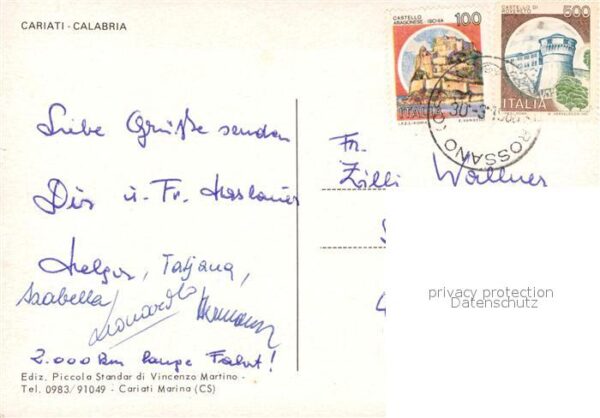 CARIATI - CALABRIA
CASTELLO
ARAGONESE ISCHIA
100
ITALIA
CASTELLO DI
ROVERETO
500
ITALIA
ROSSANO
Liebe Grüße senden
Dir u. Fr. Haslauer
Helga, Tatjana,
Isabella
Leonardo
Hermann
2.000 km lange Fahrt!
Fr.
Zilli Wallner
privacy protection
Datenschutz
Ediz. Piccola Standar di Vincenzo Martino -
Tel. 0983/91049 - Cariati Marina (CS)